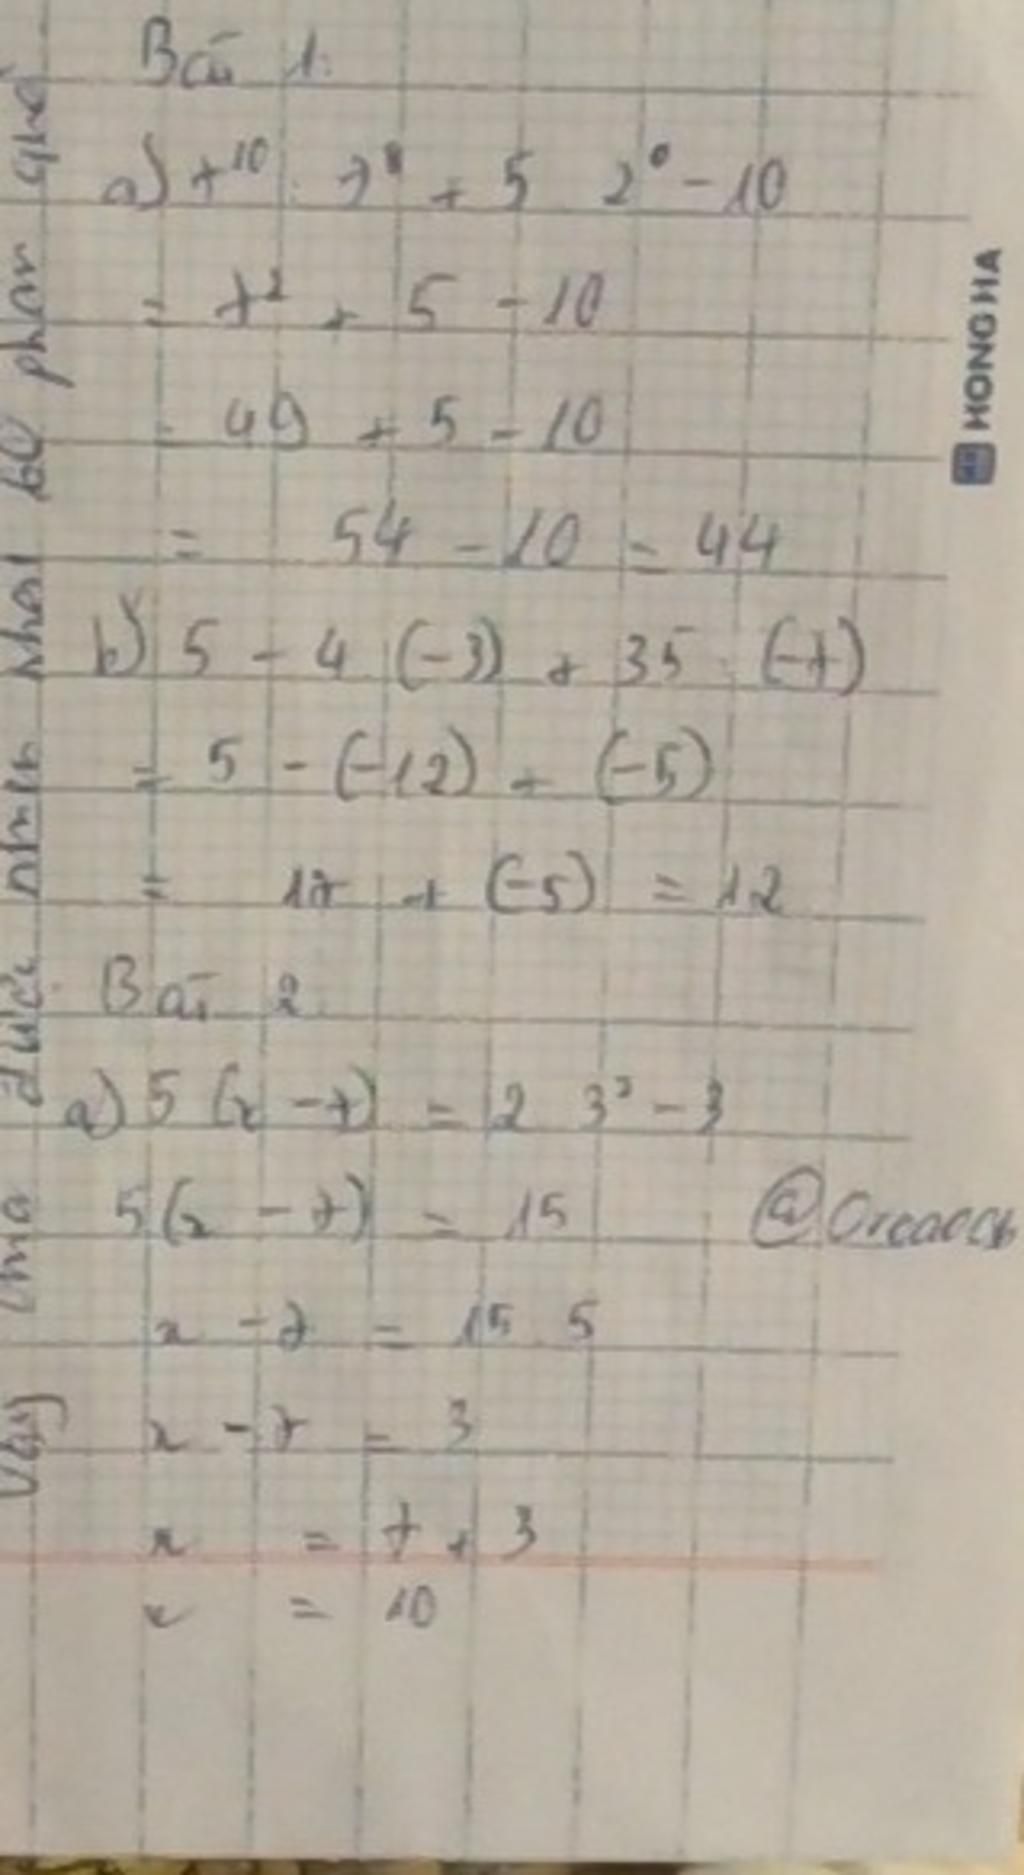 Bài 1:
a) 7¹⁰ : 7⁸ + 5 . 2⁰ - 10
= 7² + 5 - 10
= 49 + 5 - 10
= 54 - 10 = 44
b) 5 - 4 . (-3) + 35 : (-7)
= 5 - (-12) + (-5)
= 17 + (-5) = 12
Bài 2
a) 5 (x - 7) = 2 3² - 3
5(x - 7) = 15
x - 7 = 15 5
x - 7 = 3
x = 7 + 3
x = 10
được nhiều nhất 60 phần quà
HONG HA